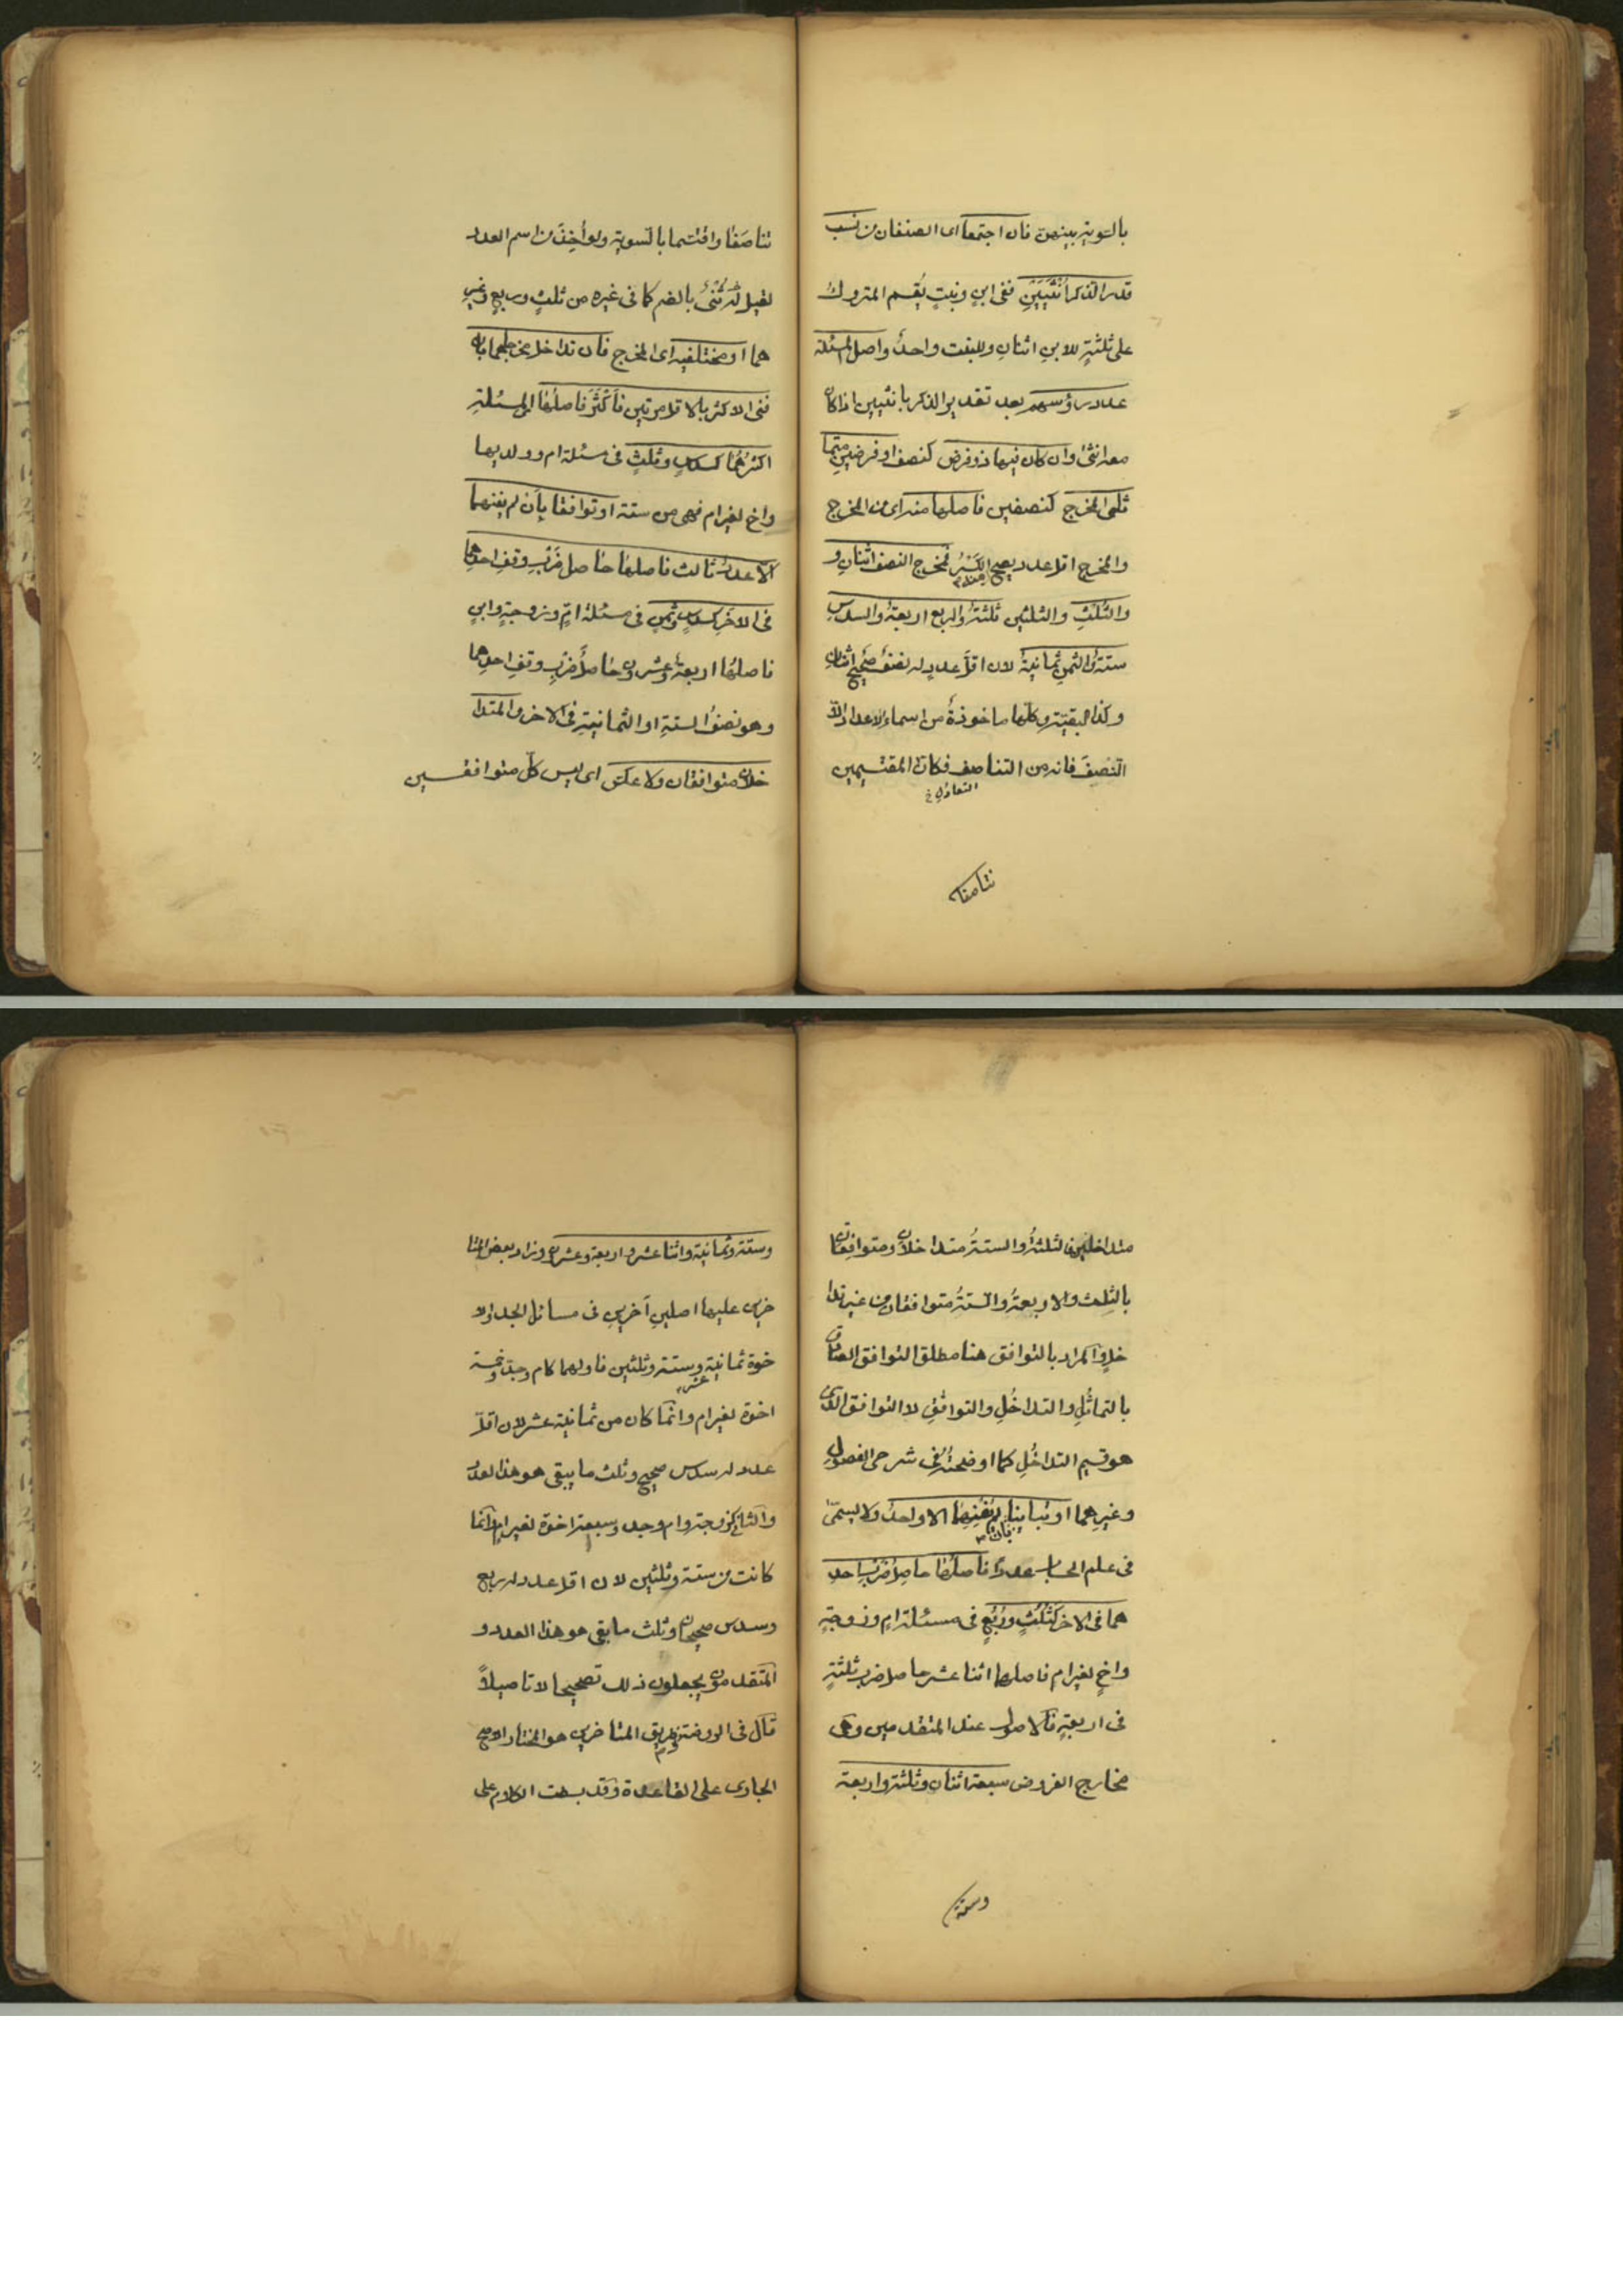 بالسوية بينهن فان اجتمعا اى الصنفان من نسب
قدر الذكر اُنْثَيَيْنِ ففى ابنٍ وبنتٍ يُقسم المتروك
على ثلثةٍ للابنِ اثنانِ وللبنت واحدٌ واصل المسئلة
عدد رؤسهم بعد تقدير الذكر بانثيين اذا كان
معه انثى وان كان فيها ذو فرض كنصف او فرضين متمـا
ثلى المخرج كنصفين فاصلها منه اى من المخرج
والمخرج اقل عدد يصح الكَسْرُ فمخرج النصف اثنانِ و
والثُلُثِ والثلثين ثلثةٌ والربع اربعةٌ والسدس
ستةٌ والثمنِ ثمانيةٌ لان اقلَّ عددٍ له نصفٌ صحيح اثنانِ
وكذا البقيَّة وكلّها ماخوذةٌ من اسماءِ الاعداد الّا
النّصفَ فانه من التناصف فكانّ المقتسِمين
التعادُل خ
تناصفا
تناصَفَا واقتسما بالسوية ولو اُخِذَ من اسم العدد
لقيل له ثُنىٌ بالضم كما فى غيره من ثلثٍ وربعٍ وغير
هما او مختلفيه اى المخرج فان تداخل مخرجاهما بان
فنى الاكثر بالاقل مرتين فاَكْثَرَ فاصلُها اى المسئلةِ
اكثرُهُما كسدسٍ وثلثٍ فى مسئلة ام وولديها
واخ لغير ام فهى من ستة او توافقا بان لم يفنهما
الّا عددٌ ثالث فاصلها حاصل ضَرْبِ وفقِ احدِهما
فى الاخَرِ كسدسٍ وثمنٍ فى مسئلة امٍّ وزوجةٍ وابنٍ
فاصلُها اربعةٌ وعشرون حاصلُ ضَرْبِ وفقِ احدِهما
وهو نصفُ الستةِ او الثمانيةِ فى الاخر والمتدا
خلان متوافقان ولا عكس اى ليس كلّ متوافقـــين
متداخلين فالثلثةُ والستةُ متداخلان ومتوافقان
بالثلث والاربعةُ والستةُ متوافقان من غير تدا
خلٍ والمراد بالتوافق هنا مطلق التوافق الصادق
بالتماثُلِ والتداخُلِ والتوافُقِ لا التوافق الذى
هو قسيم التداخُلِ كما اوضحتُه فى شرحى الفصول
وغيرِهما او تباينا بان لم يُفْنِهِمَا الا واحدٌ ولا يسمّى
فى علم الحساب عددا فاصلُها حاصِلُ ضَرْبِ احدِ
هما فى الاخر كثُلُثٍ ورُبُعٍ فى مسئلة امٍ وزوجةٍ
واخٍ لغير ام فاصلها اثنا عشر حاصل ضرب ثلثةٍ
فى اربعةٍ فالاصول عند المتقدمين وهى
مخارج الفروض سبعة اثنان وثلثة واربعة
وستة
وستة وثمانية واثنا عشر واربعة وعشرون وزاد بعض المتا
خرين عليها اصلينِ آخرينِ فى مسائل الجد والا
خوة ثمانية عشر وستة وثلثين فاولهما كام وجد وخمسة
اخوة لغير ام وانّما كان من ثمانية عشر لان اقلّ
عدد له سدس صحيح وثلث ما يبقى هو هذا العدد
والثانى كزوجة وام وجد وسبعة اخوة لغير امٍ وانّما
كانت من ستة وثلثين لان اقل عدد له ربع
وسدس صحيحان وثلث ما بقى هو هذا العدد و
المتقدمون يجعلون ذلك تصحيحا لا تاصيلاً
قال فى الروضة وطريق المتاخرين هو المختار الاصح
الجارى على القاعدة وقد بسطت الكلام على